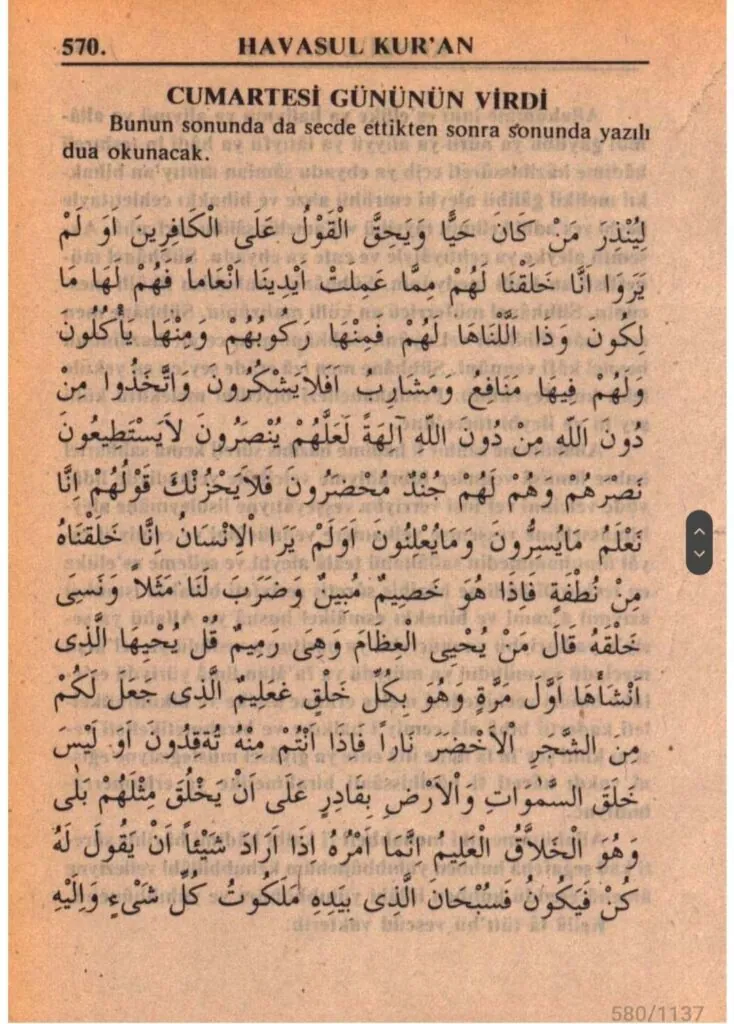 570. HAVASUL KUR'AN
CUMARTESİ GÜNÜNÜN VİRDİ
Bunun sonunda da secde ettikten sonra sonunda yazılı
dua okunacak.
لِيُنْذِرَ مَنْ كَانَ حَيًّا وَيَحِقَّ الْقَوْلُ عَلَى الْكَافِرِينَ اَوَ لَمْ
يَرَوْا اَنَّا خَلَقْنَا لَهُمْ مِمَّا عَمِلَتْ اَيْدِينَا اَنْعَاماً فَهُمْ لَهَا مَا
لِكُونَ وَذَا اللَّنَاهَا لَهُمْ فَمِنْهَا رَكُوبُهُمْ وَمِنْهَا يَأْكُلُونَ
وَلَهُمْ فِيهَا مَنَافِعُ وَمَشَارِبُ اَفَلَايَشْكُرُونَ وَاتَّخَذُوا مِنْ
دُونَ اللّٰهِ مِنْ دُونَ اللّٰهِ آلِهَةً لَعَلَّهُمْ يُنْصَرُونَ لَايَسْتَطِيعُونَ
نَصْرَهُمْ وَهُمْ لَهُمْ جُنْدٌ مُحْضَرُونَ فَلَايَحْزُنْكَ قَوْلُهُمْ اِنَّا
نَعْلَمُ مَايُسِرُّونَ وَمَايُعْلِنُونَ اَوَلَمْ يَرَا الْاِنْسَانُ اِنَّا خَلَقْنَاهُ
مِنْ نُطْفَةٍ فَاِذَا هُوَ خَصِيمٌ مُبِينٌ وَضَرَبَ لَنَا مَثَلاً وَنَسِىَ
خَلْقَهُ قَالَ مَنْ يُحْيِى الْعِظَامَ وَهِىَ رَمِيمٌ قُلْ يُحْيِهَا الَّذِى
اَنْشَاَهَا اَوَّلَ مَرَّةٍ وَهُوَ بِكُلِّ خَلْقٍ عَلِيمٌ الَّذِى جَعَلَ لَكُمْ
مِن الشَّجَرِ الْاَخْضَرِ نَاراً فَاِذَا اَنْتُمْ مِنْهُ تُوقِدُونَ اَوَ لَيْسَ
خَلَقَ السَّمٰوَاتِ وَالْاَرْضِ بِقَادِرٍ عَلَى اَنْ يَخْلُقَ مِثْلَهُمْ بَلٰى
وَهُوَ الْخَلاَّقُ الْعَلِيمُ اِنَّمَا اَمْرُهُ اِذَا اَرَادَ شَيْئاً اَنْ يَقُولَ لَهُ
كُنْ فَيَكُونُ فَسُبْحَانَ الَّذِى بِيَدِهِ مَلَكُوتُ كُلِّ شَىْءٍ وَاِلَيْهِ
580/1137